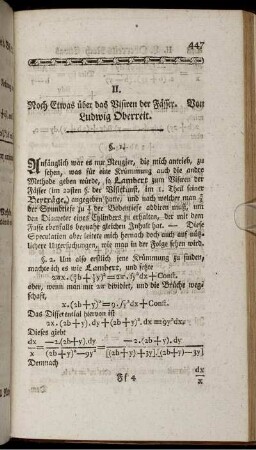 447
II.
Noch Etwas über das Visiren der Fässer. Von
Ludwig Oberreit.
§. 1.
Anfänglich war es nur Neugier, die mich antrieb, zu
sehen, was für eine Krümmung auch die andre
Methode geben würde, so Lambert zum Visiren der
Fässer (im 20sten §. der Visirkunst, im 1. Theil seiner
Beyträge,) angegeben hatte, und nach welcher man ⅔
der Spundtiefe zu ⅓ der Bodentiefe addiren muß, um
den Diameter eines Cylinders zu erhalten, der mit dem
Fasse ebenfalls beynahe gleichen Inhalt hat. — Diese
Speculation aber leitete mich hernach doch auch auf nütz-
lichere Untersuchungen, wie man in der Folge sehen wird.
§. 2. Um also erstlich jene Krümmung zu finden,
machte ich es wie Lambert, und setzte
aber, wenn man mit 2π dividirt, und die Brüche weg-
schaft,
x.(2b+y)²=9.∫y²dx+Const.
Das Differential hiervon ist
2x.(2b+y).dy+(2b+y)².dx=9y²dx
Dieses giebt
dx/x = −2.(2b+y).dy/(2b+y)²−9y² = −2.(2b+y).dy/[(2b+y)+3y].[(2b+y)−3y]
Demnach
Ff 4 dx/x